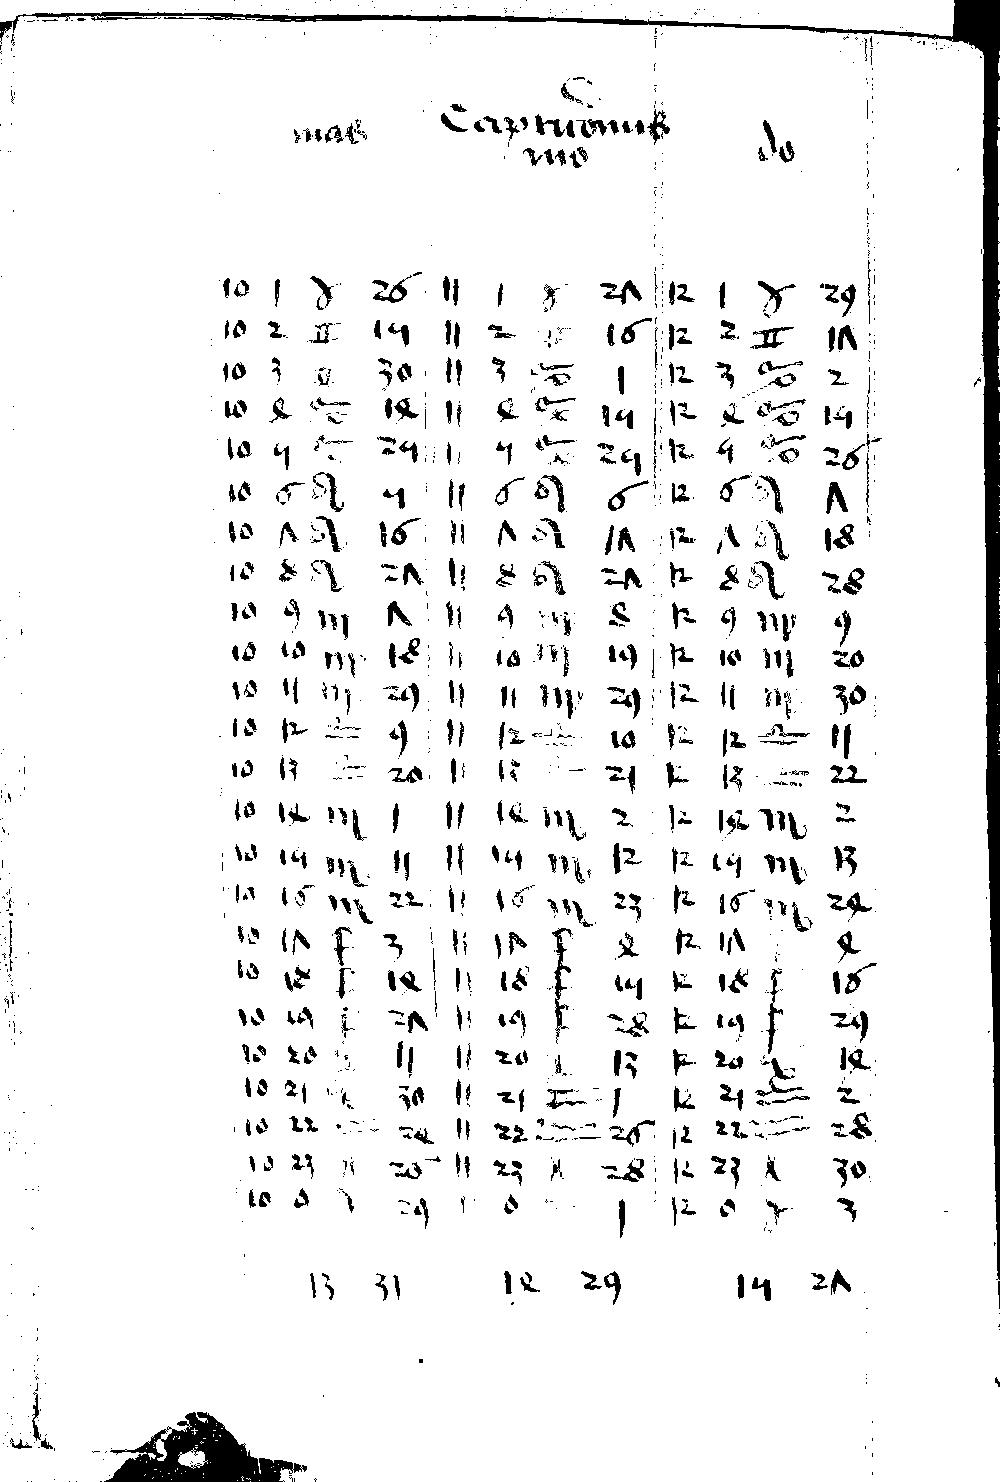 Capricornus
mo do
10 1 ♉ 26 11 1 ♉ 27 12 1 ♉ 29
10 2 ♊ 15 11 2 ♊ 16 12 2 ♊ 17
10 3 30 11 3 ♋ 1 12 3 ♋ 2
10 4 ♋ 14 11 4 ♋ 15 12 4 ♋ 15
10 5 ♋ 25 11 5 ♋ 25 12 5 ♋ 26
10 6 ♌ 5 11 6 ♌ 6 12 6 ♌ 7
10 7 ♌ 16 11 7 ♌ 17 12 7 ♌ 18
10 8 ♌ 27 11 8 ♌ 27 12 8 ♌ 28
10 9 ♍ 7 11 9 ♍ 8 12 9 ♍ 9
10 10 ♍ 18 11 10 ♍ 19 12 10 ♍ 20
10 11 ♍ 29 11 11 ♍ 29 12 11 ♍ 30
10 12 ♎ 9 11 12 ♎ 10 12 12 ♎ 11
10 13 ♎ 20 11 13 ♎ 21 12 13 ♎ 22
10 14 ♏ 1 11 14 ♏ 2 12 14 ♏ 2
10 15 ♏ 11 11 15 ♏ 12 12 15 ♏ 13
10 16 ♏ 22 11 16 ♏ 23 12 16 ♏ 24
10 17 ♐ 3 11 17 ♐ 4 12 17 ♐ 4
10 18 ♐ 14 11 18 ♐ 15 12 18 ♐ 16
10 19 ♐ 27 11 19 ♐ 28 12 19 ♐ 29
10 20 11 11 20 13 12 20 ♑ 14
10 21 30 11 21 ♒ 1 12 21 ♒ 2
10 22 ♒ 24 11 22 ♒ 26 12 22 ♒ 28
10 23 20 11 23 28 12 23 30
10 0 29 11 0 1 12 0 ♉ 3
13 31 14 29 15 27